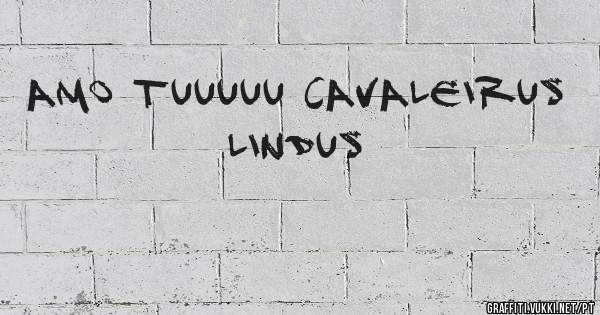 AMO TUUUUU CAVALEIRUS
LINDUS
GRAFFITI.VUKKI.NET/PT